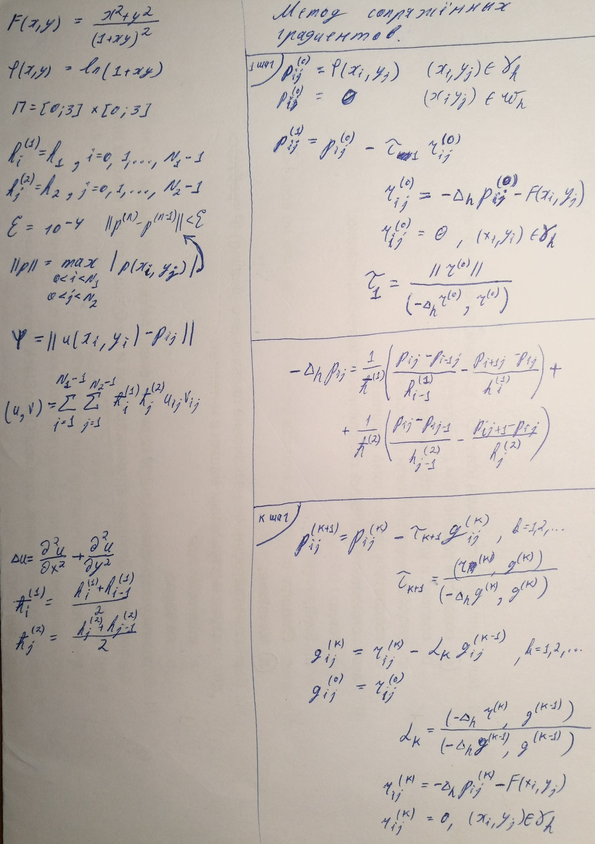 F(x,y) = \frac{x^2+y^2}{(1+xy)^2}
φ(x,y) = ln(1+xy)
П = [0;3] × [0;3]
h_i^{(1)} = h_1, i=0,1,..., N_1-1
h_j^{(2)} = h_2, j=0,1,..., N_2-1
ε = 10^{-4} ||p^{(n)} - p^{(n-1)}|| < ε
||p|| = max_{0<i<N_1, 0<j<N_2} |p(x_i, y_j)|
Ψ = ||u(x_i, y_i) - p_{ij}||
(u,v) = \sum_{j=1}^{N_1-1} \sum_{j=1}^{N_2-1} ħ_i^{(1)} ħ_j^{(2)} u_{ij} v_{ij}
Δu = \frac{∂^2 u}{∂x^2} + \frac{∂^2 u}{∂y^2}
ħ_i^{(1)} = \frac{h_i^{(1)} + h_{i-1}^{(1)}}{2}
ħ_j^{(2)} = \frac{h_j^{(2)} + h_{j-1}^{(2)}}{2}
Метод сопряжённых
градиентов.
1 шаг
p_{ij}^{(0)} = φ(x_i, y_j) (x_i, y_j) ∈ γ_h
p_{ij}^{(0)} = 0 (x_i y_j) ∈ ω_h
p_{ij}^{(1)} = p_{ij}^{(0)} - τ_1 r_{ij}^{(0)}
r_{ij}^{(0)} = -Δ_h p_{ij}^{(0)} - F(x_i, y_j)
r_{ij}^{(0)} = 0, (x_i, y_i) ∈ γ_h
τ_1 = \frac{||r^{(0)}||}{(-Δ_h r^{(0)}, r^{(0)})}
-Δ_h p_{ij} = \frac{1}{ħ^{(1)}} (\frac{p_{ij} - p_{i-1j}}{h_{i-1}^{(1)}} - \frac{p_{i+1j} - p_{ij}}{h_i^{(1)}}) +
+ \frac{1}{ħ^{(2)}} (\frac{p_{ij} - p_{ij-1}}{h_{j-1}^{(2)}} - \frac{p_{ij+1} - p_{ij}}{h_j^{(2)}})
к шаг
p_{ij}^{(k+1)} = p_{ij}^{(k)} - τ_{k+1} g_{ij}^{(k)}, k=1,2,...
τ_{k+1} = \frac{(r^{(k)}, g^{(k)})}{(-Δ_h g^{(k)}, g^{(k)})}
g_{ij}^{(k)} = r_{ij}^{(k)} - α_k g_{ij}^{(k-1)}, k=1,2,...
g_{ij}^{(0)} = r_{ij}^{(0)}
α_k = \frac{(-Δ_h r^{(k)}, g^{(k-1)})}{(-Δ_h g^{(k-1)}, g^{(k-1)})}
r_{ij}^{(k)} = -Δ_h p_{ij}^{(k)} - F(x_i, y_j)
r_{ij}^{(k)} = 0, (x_i, y_j) ∈ γ_h